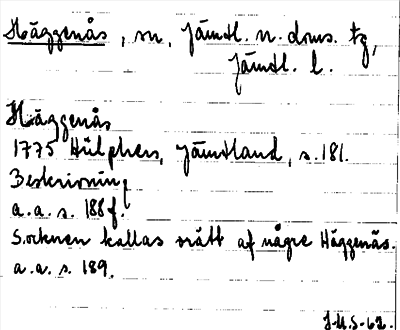 Häggenås, sn, Jämtl. n. doms. tg,
Jämtl. l.
Häggenås
1775 Hülphers, Jämtland, s. 181.
Beskrivning
a.a. s. 188 f.
Socknen kallas orätt af någre Häggenäs.
a.a. s. 189.
J.H.S-62.